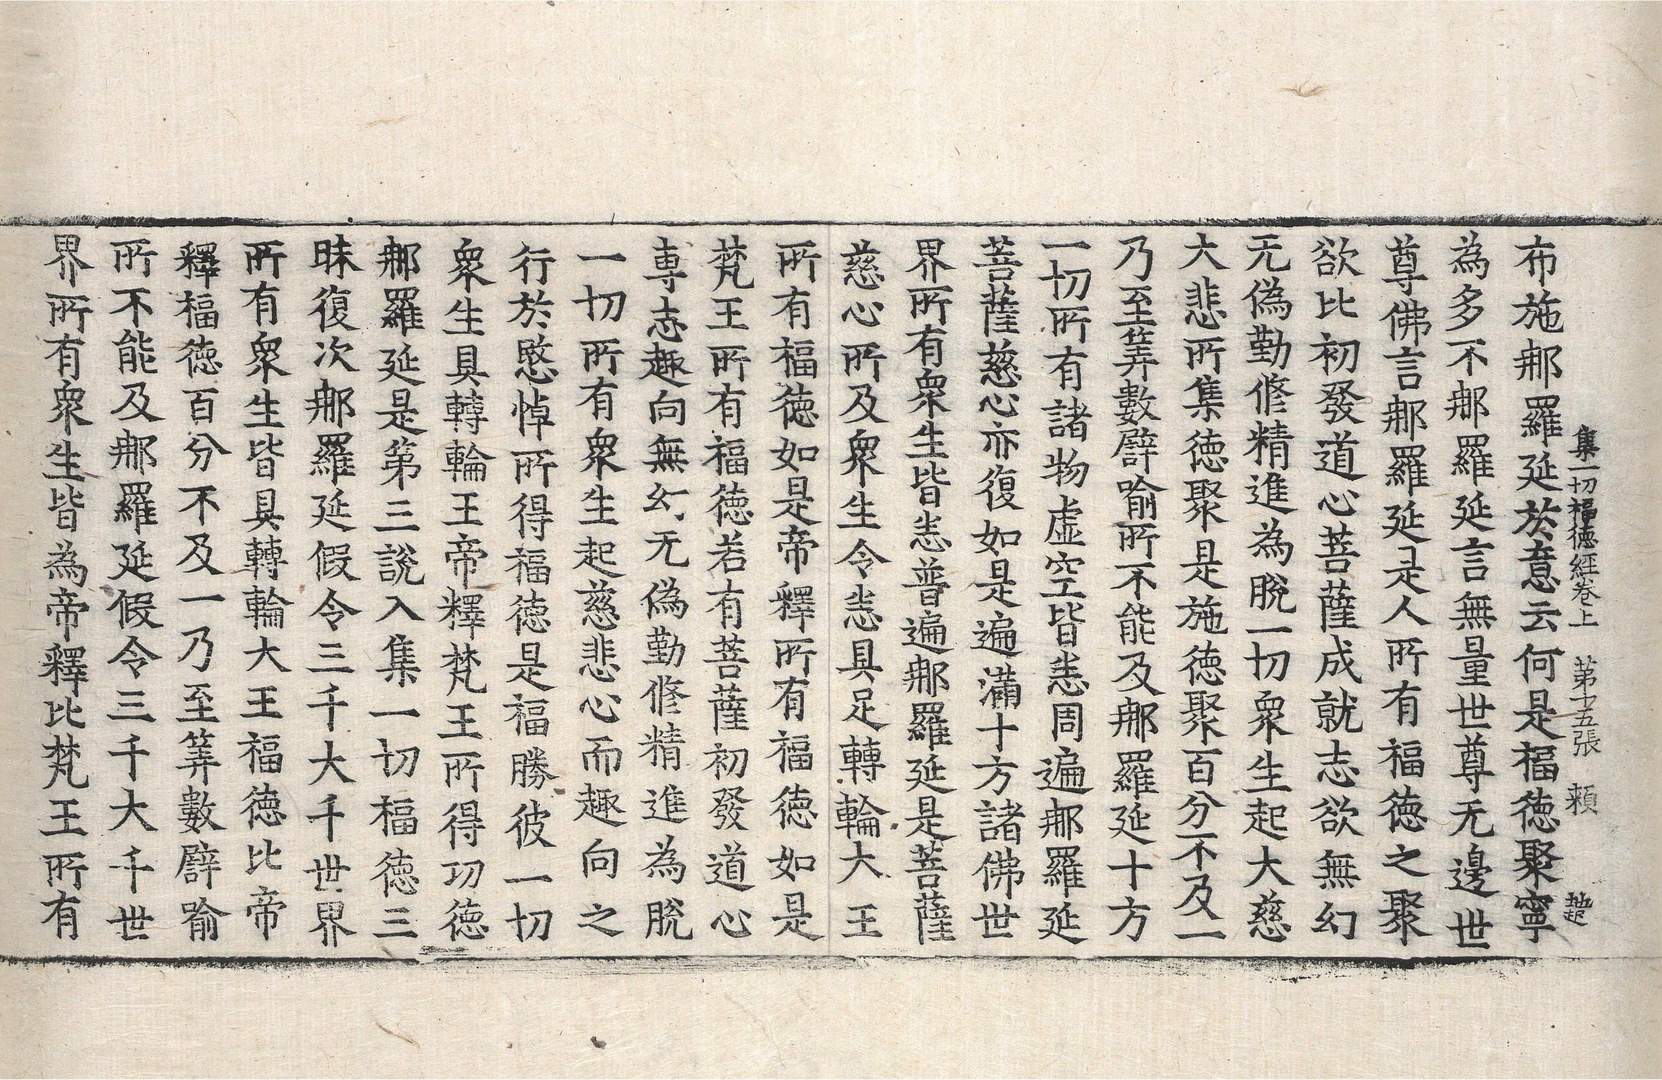 集一切福德經卷上 第十五張 頼 趙
布施那羅延於意云何是福德聚寧
為多不那羅延言無量世尊无邊世
尊佛言那羅延是人所有福德之聚
欲比初發道心菩薩成就志欲無幻
无偽勤修精進為脫一切衆生起大慈
大悲所集德聚是施德聚百分不及一
乃至筭數譬喻所不能及那羅延十方
一切所有諸物虛空皆悉周遍那羅延
菩薩慈心亦復如是遍滿十方諸佛世
界所有衆生皆悉普遍那羅延是菩薩
慈心所及衆生令悉具足轉輪大王
所有福德如是帝釋所有福德如是
梵王所有福德若有菩薩初發道心
専志趣向無幻无偽勤修精進為脫
一切所有衆生起慈悲心而趣向之
行於愍悼所得福德是福勝彼一切
衆生具轉輪王帝釋梵王所得功德
那羅延是第三說入集一切福德三
昧復次那羅延假令三千大千世界
所有衆生皆具轉輪大王福德比帝
釋福德百分不及一乃至筭數譬喻
所不能及那羅延假令三千大千世
界所有衆生皆為帝釋比梵王所有